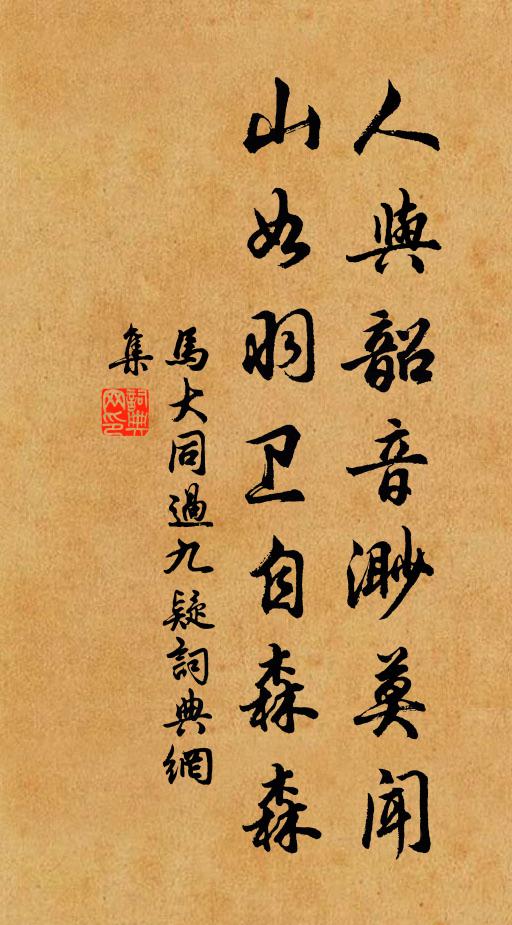 人與韶音渺莫聞
山如羽卫自森森
馬大同過九疑詞典網
集
詞典網印